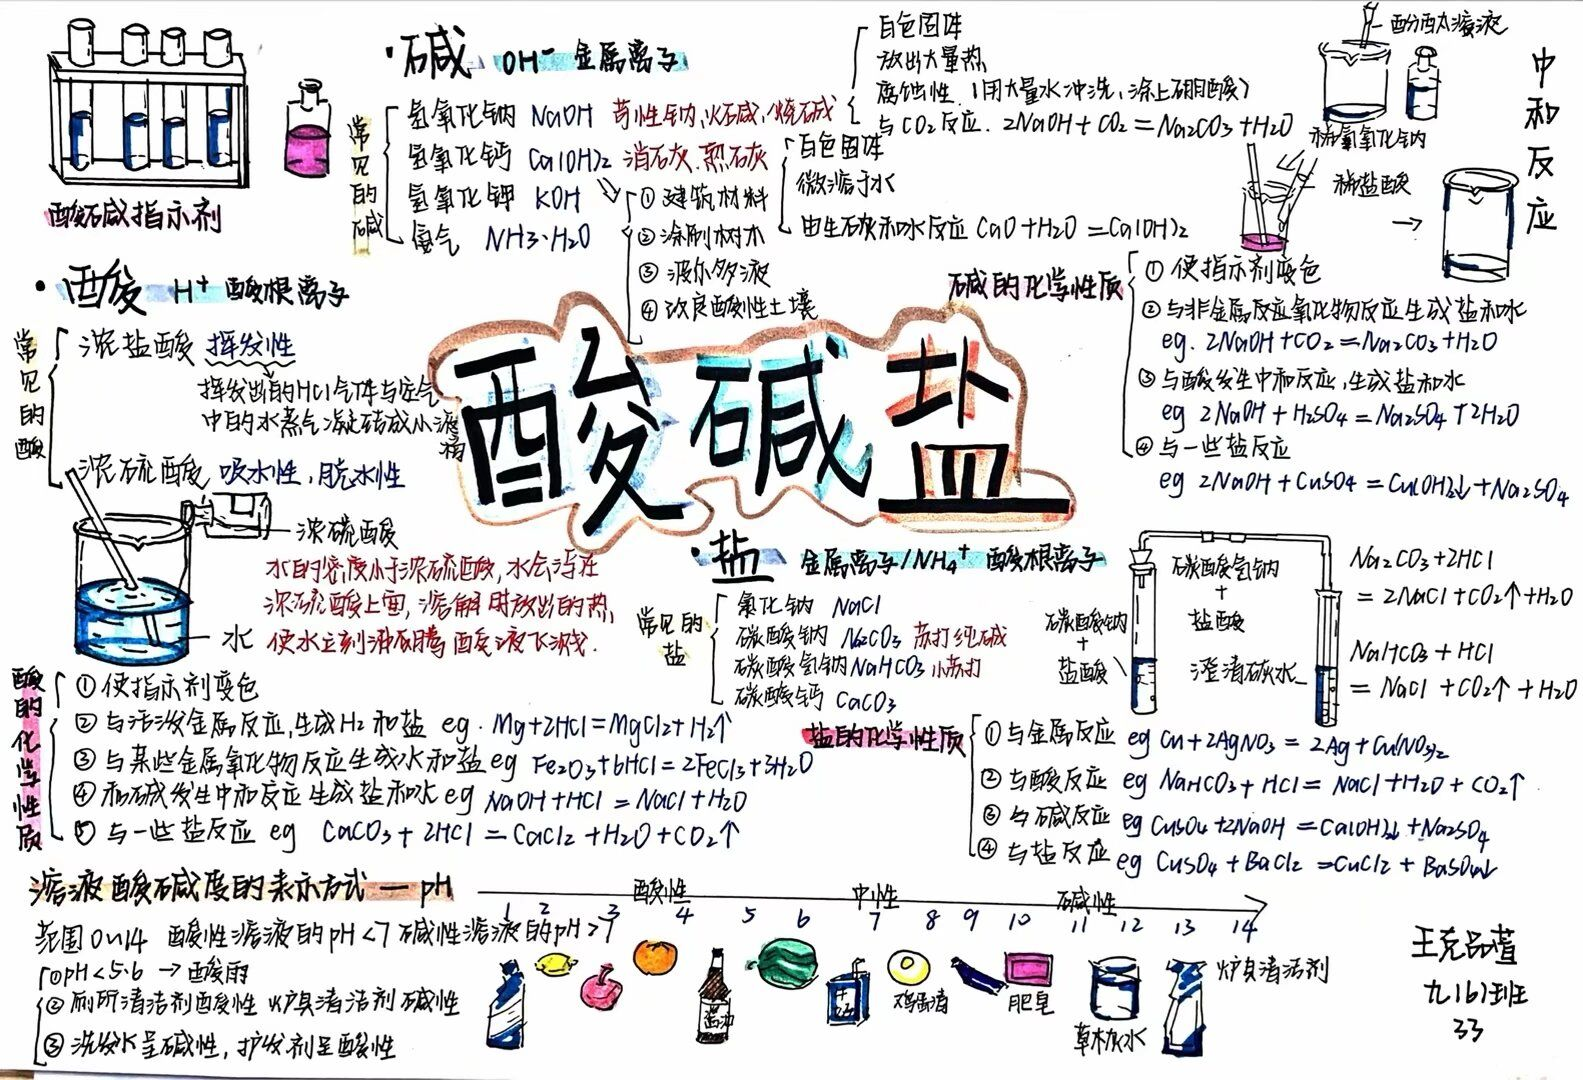 酸碱指示剂
·碱 OH⁻ 金属离子
常见的碱
氢氧化钠 NaOH 苛性钠、火碱、烧碱
白色固体
放出大量热
腐蚀性.(用大量水冲洗,涂上硼酸)
与CO2反应. 2NaOH+CO2=Na2CO3+H2O
氢氧化钙 Ca(OH)2 消石灰.熟石灰
白色固体
微溶于水
由生石灰和水反应 CaO+H2O=Ca(OH)2
①建筑材料
②涂刷树木
③波尔多液
④改良酸性土壤
氢氧化钾 KOH
氨气 NH3·H2O
中和反应
酚酞溶液
稀氢氧化钠
稀盐酸
→
碱的化学性质
①使指示剂变色
②与非金属反应氧化物反应生成盐和水
eg. 2NaOH+CO2=Na2CO3+H2O
③与酸发生中和反应,生成盐和水
eg 2NaOH+H2SO4=Na2SO4+2H2O
④与一些盐反应
eg 2NaOH+CuSO4=Cu(OH)2↓+Na2SO4
·酸 H⁺ 酸根离子
常见的酸
浓盐酸 挥发性
挥发出的HCl气体与空气
中的水蒸气凝结成小液滴
浓硫酸 吸水性,脱水性
浓硫酸
水
水的密度小于浓硫酸,水会浮在
浓硫酸上面,溶解时放出的热,
使水立刻沸腾 酸液飞溅.
酸碱盐
酸的化学性质
①使指示剂变色
②与活泼金属反应,生成H2和盐 eg. Mg+2HCl=MgCl2+H2↑
③与某些金属氧化物反应生成水和盐 eg Fe2O3+6HCl=2FeCl3+3H2O
④和碱发生中和反应生成盐和水 eg NaOH+HCl=NaCl+H2O
⑤与一些盐反应 eg CaCO3+2HCl=CaCl2+H2O+CO2↑
·盐 金属离子/NH4⁺ 酸根离子
常见的盐
氯化钠 NaCl
碳酸钠 Na2CO3 苏打 纯碱
碳酸氢钠 NaHCO3 小苏打
碳酸钙 CaCO3
碳酸氢钠
+
盐酸
碳酸钠
+
盐酸
澄清石灰水
Na2CO3+2HCl
=2NaCl+CO2↑+H2O
NaHCO3+HCl
=NaCl+CO2↑+H2O
盐的化学性质
①与金属反应 eg Cu+2AgNO3=2Ag+Cu(NO3)2
②与酸反应 eg NaHCO3+HCl=NaCl+H2O+CO2↑
③与碱反应 eg CuSO4+2NaOH=Ca(OH)2↓+Na2SO4
④与盐反应 eg CuSO4+BaCl2=CuCl2+BaSO4↓
溶液酸碱度的表示方式—pH
范围0~14 酸性溶液的pH<7 碱性溶液的pH>7
①pH<5.6→酸雨
②厕所清洁剂酸性 炉具清洁剂碱性
③洗发水呈碱性,护发剂呈酸性
酸性 中性 碱性
1 2 3 4 5 6 7 8 9 10 11 12 13 14
酱油
鸡蛋清
肥皂
草木灰水
炉具清洁剂
九(6)班
33